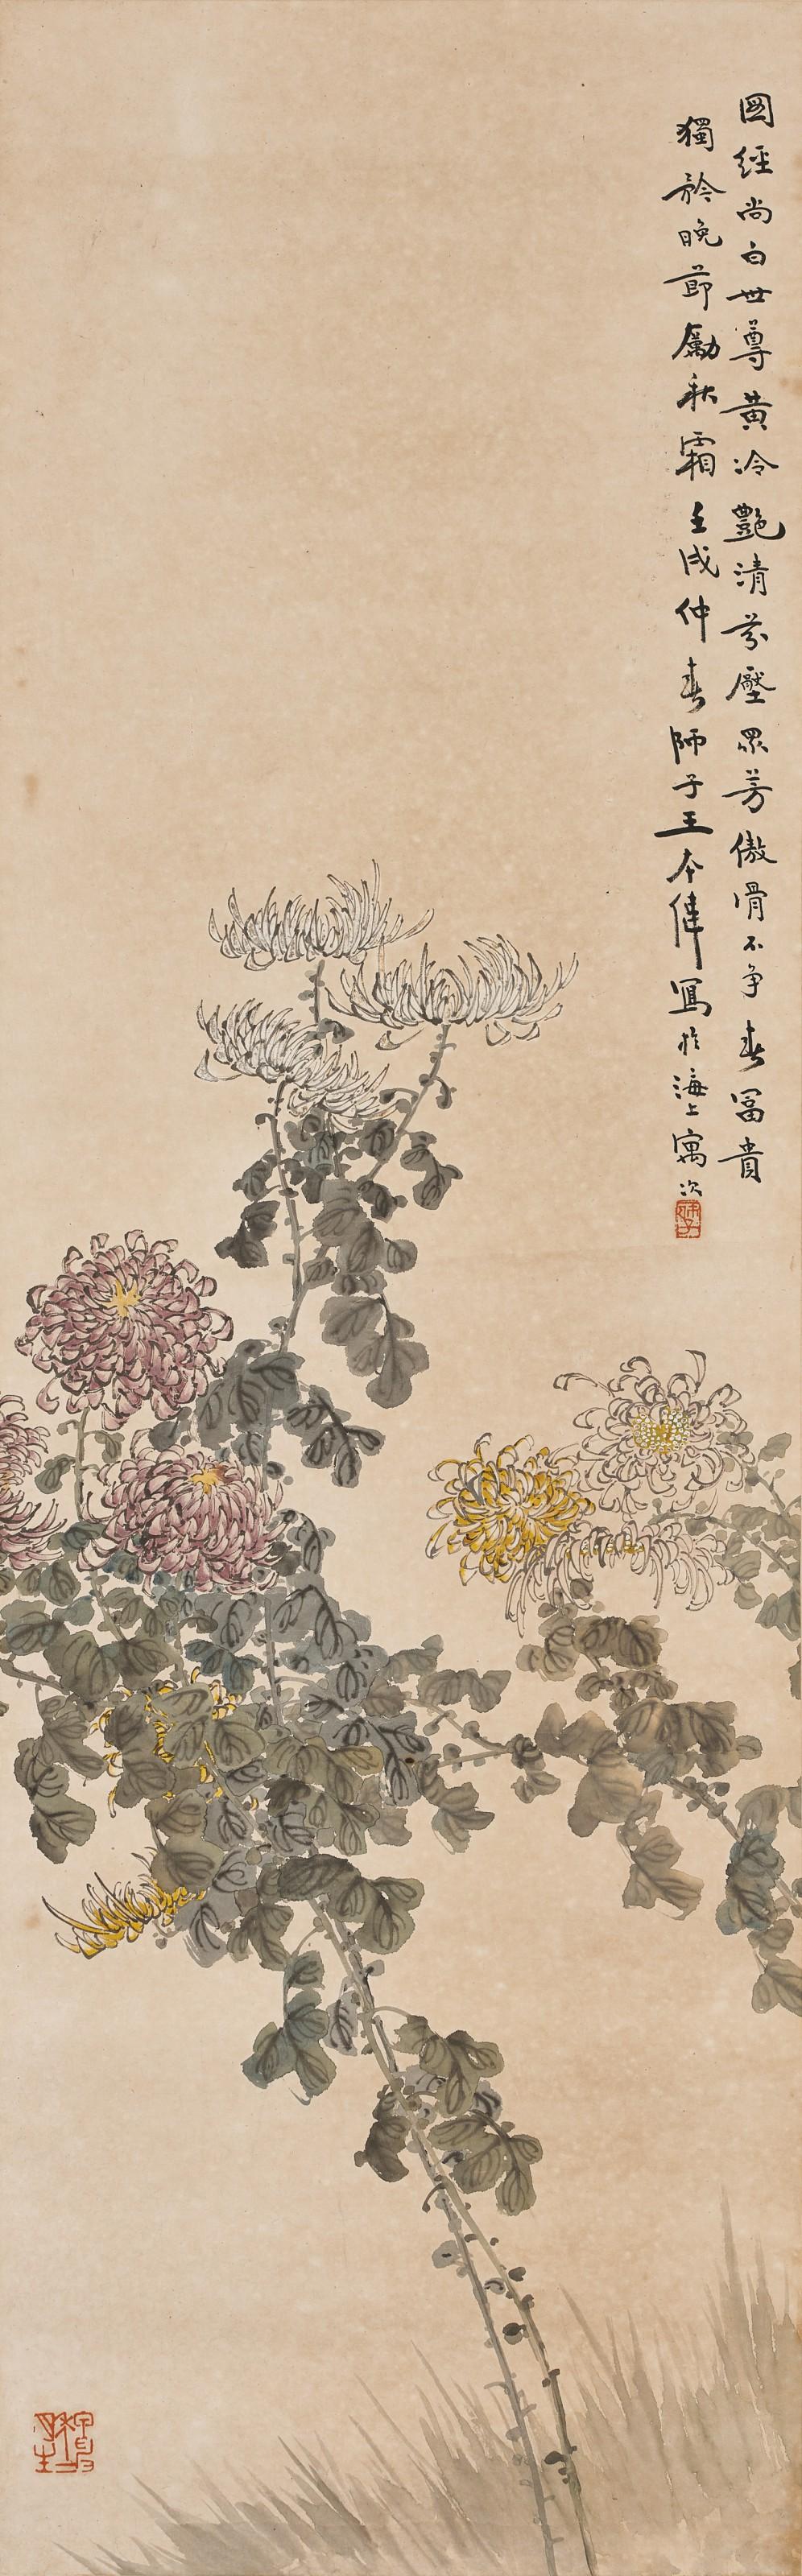 圖經尚白世尊黃冷艷清芬壓眾芳傲骨不爭春富貴
獨矜晚節勵秋霜壬戌仲春師子王本偉寫於海上寓次